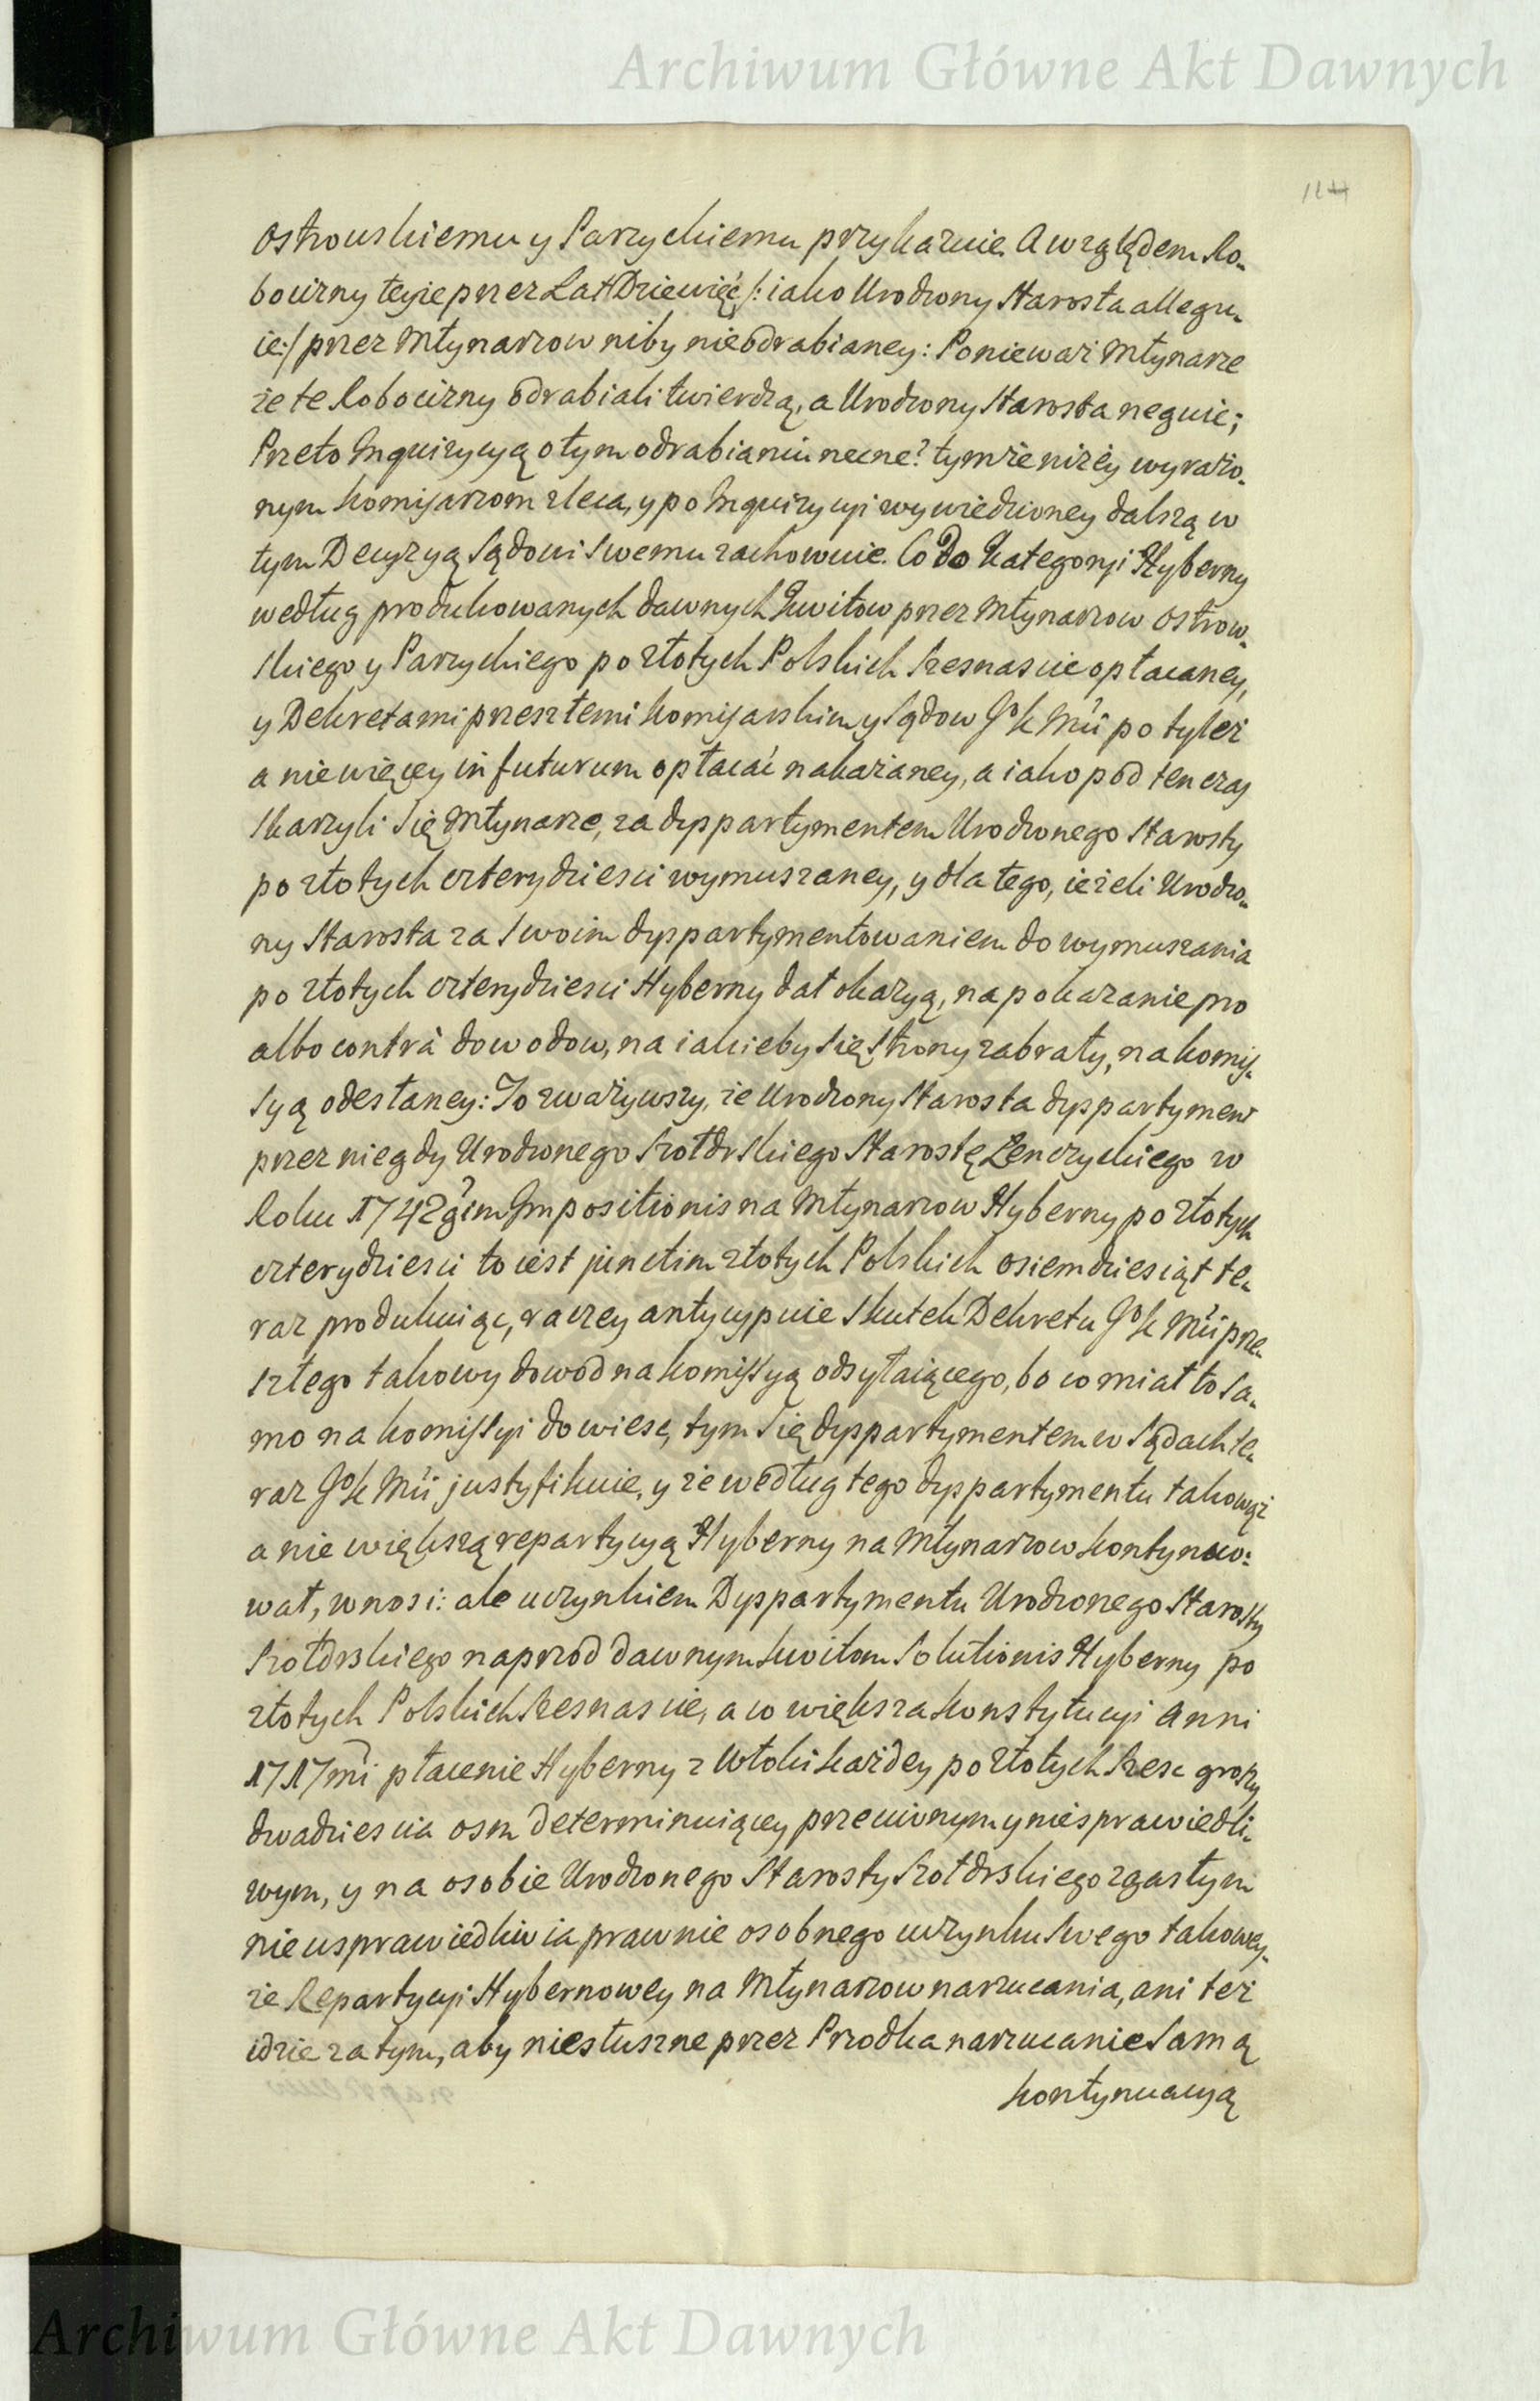 Archiwum Główne Akt Dawnych
124
Ostrowskiemu y Parzyckiemu przykazuie. A względem Ro-
bocizny teyże przez Lat Dziewięć /: iako Urodzony Starosta allegu-
ie :/ przez Młynarzow niby nieodrabianey: Ponieważ Młynarze
że te Robocizny odrabiali twierdzą, a Urodzony Starosta neguie;
Przeto Inquizycyą o tym odrabianiu necne? tymże niżey wyrażo-
nym Komisarzom zleca, y po Inquizycyi wywiedzioney dalszą w
tym Decyzyą Sądowi Swemu zachowuie. Co do Kategoryi Hyberny
według produkowanych dawnych Kwitow przez Młynarzow Ostrow-
skiego y Parzyckiego po złotych Polskich Szesnascie opłacaney,
y Dekretami przeszłemi Komisarskim y Sądow JoK Mci po tyleż
a nie więcey in futurum opłacać nakazaney, a iako pod ten czas
skarzyli się Młynarze, za dyppartymentem Urodzonego Starosty
po złotych czterydziesci wymuszaney, y dla tego, ieżeli Urodzo-
ny Starosta za Swoim dyppartymentowaniem do wymuszania
po złotych czterydziesci Hyberny dał okazyą, na pokazanie pro
albo contrà dowodow, na iakieby się Strony zabrały, na Komis-
syą odesłaney: To zważywszy, że Urodzony Starosta dyppartyment
przez niegdy Urodzonego Szołdrskiego Starostę Łenczyckiego w
Roku 1742gim Impositionis na Młynarzow Hyberny po złotych
czterydziesci to iest junctim złotych Polskich osiemdziesiąt te-
raz produkuiąc, raczey antycypuie Skutek Dekretu JoK Mci prze-
szłego takowy dowod na Komissyą odsyłaiącego, bo co miał to sa-
mo na Komissyi dowiesc, tym się dyppartymentem w Sądach te-
raz JoK Mci justyfikuie, y że według tego dyppartymentu takowąż
a nie większą repartycyą Hyberny na Młynarzow kontynuo-
wał, wnosi: ale uczynkiem Dyppartymentu Urodzonego Starosty
Szołdrskiego naprzod dawnym Kwitom Solutionis Hyberny po
złotych Polskich Szesnascie, a co większa Konstytucyi Anni
1717mi płacenie Hyberny z Włoki każdey po złotych Szesc groszy
dwadziescia osm determinuiącey przeciwnym y niesprawiedli-
wym, y na osobie Urodzonego Starosty Szołdrskiego zgasłym
nieusprawiedliwia prawnie osobnego uczynku Swego takowey-
że Repartycyi Hybernowey na Młynarzow narzucania, ani też
idzie za tym, aby niesłuszne przez Przodka narzucanie Samą
kontynuacyą
Archiwum Główne Akt Dawnych